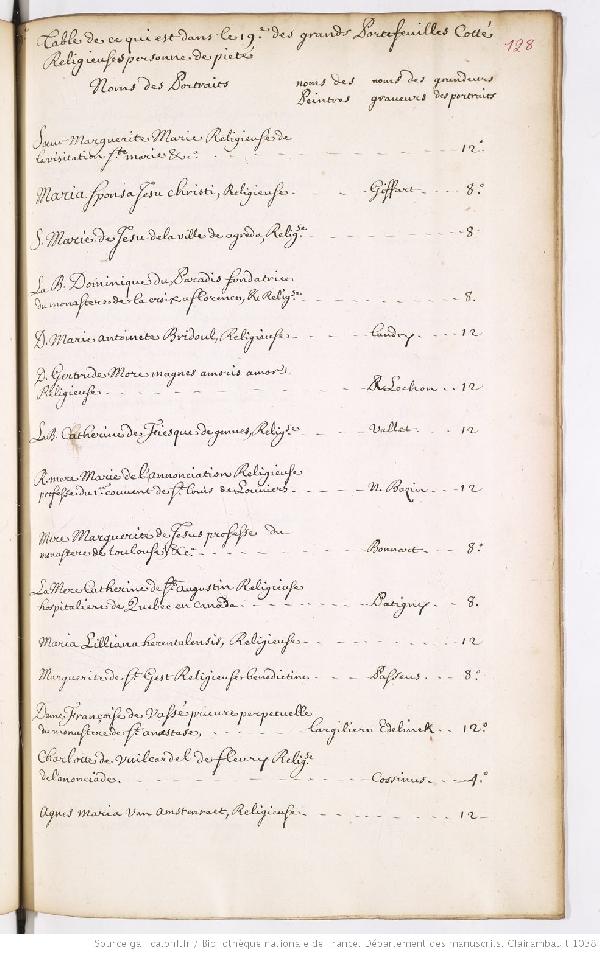 Table de ce qui est dans le 19.e des grands Portefeuilles Cotté
128
Religieuses personne de pieté
Noms des Portraits noms des Peintres noms des graveurs grandeurs des portraits
Sœur Marguerite Marie Religieuse de
la visitation Ste marie &c. 12.o
Maria sponsa Jesu christi, Religieuse Giffart 8.o
S. Marie de Jesu de la ville de agreda, Relig.se 8
La B. Dominique du Paradis fondatrice
du monastere de la croix a florence, R. Relig.se 8.
D. Marie antoinete Bridoul, Religieuse Landry 12
D. Gertrude More magnes amoris amor
Religieuse R. Lochon 12
La B. Catherine de Fiesque de gennes, Relig.se Vallet 12
R. mere Marie de l'annonciation Religieuse
professe du 1.er couvent de St. Louis de Louviers N. Bazin 12
Mere Marguerite de Jesus professe du
monastere de toulouse, &c. Bonnart 8.o
La Mere Catherine de St. augustin Religieuse
hospitaliere de Quebec en canada Patigny 8.
Maria Lilliana herentalensis, Religieuse 12
Marguerite de St. Gest Religieuse benedictine Passeus 8.o
Dame Françoise de Vassé prieure perpetuelle
du monastere de St. anastase, Largiliere Edelinck 12.o
Charlotte de vuilcardel de fleury Relig.se
de l'anonciade Cossinus 4.o
Agnes Maria Van Amstenraet, Religieuse 12
Source gallica.bnf.fr / Bibliothèque nationale de France. Département des manuscrits. Clairambault 1038